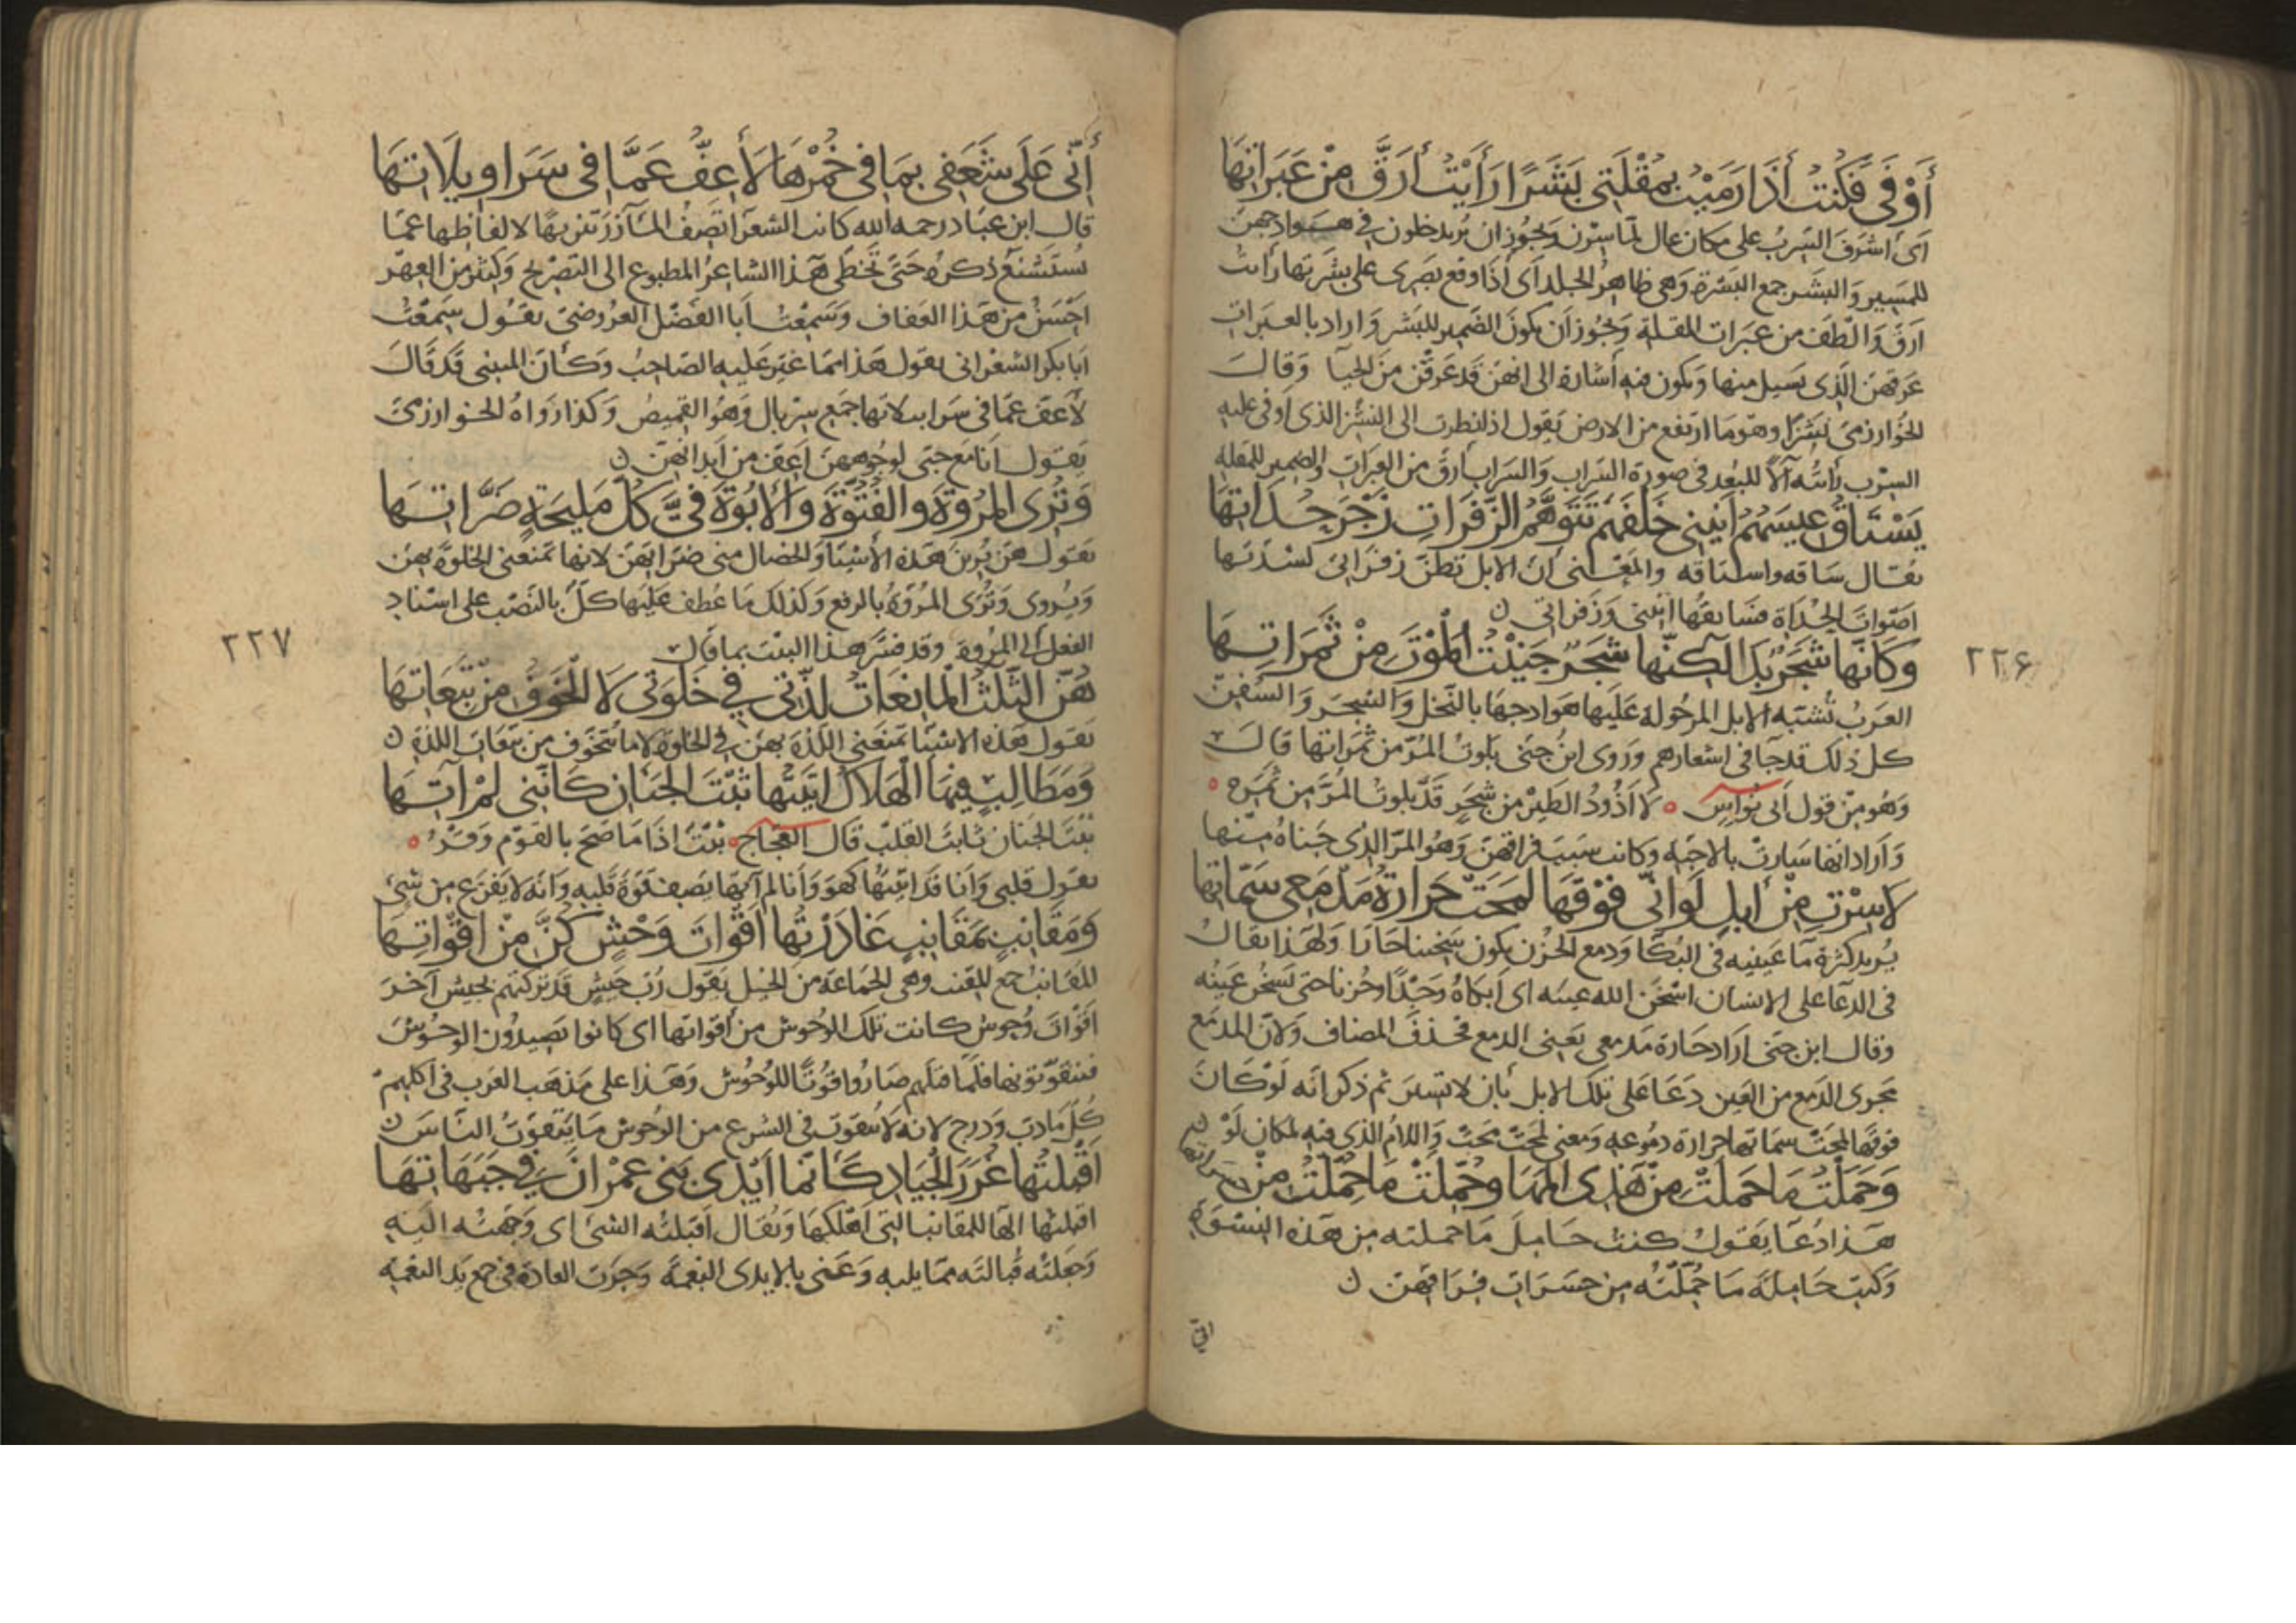 أَوْفَى فَكُنْتُ أَذَا رَمَيْتُ بِمُقْلَتِي بَشَرًا رَأَيْتُ أَرَقَّ مِنْ عَبَرَاتِهَا
اى اشرف السّربُ على مكان عال لما سِرْن ويجُوز ان يُريد خلون في هوادجهن
للمسير والبشر جمع البَشرة وَهى ظاهر الجلد اَى أذَا وقع بصَرى على بشرتها رأيت
ارقّ وَالطف من عبرات المقلة وَيجُوز أن يكونَ الضمير للبشر وَاراد بالعبرات
عرقهن الّذى يسيل منها وَيكون فيه أشارة الى انهن قد عرقن من الحيآ وَقالَ
الخوارزمى نَشزًا وهو مَا ارتفع من الارض يَقول اذ انظرت الى النشز الذى اوفى عليه
السرْب رأيتُه آلاً للبُعد فى صورة السَراب وَالسَراب أرقّ من العبَراتِ والضمير للمقلة
يَسْتَاقُ عِيسَهُمُ أَنِينِي خَلْفَهُمْ تَتَوَهَّمُ الزَّفَرَاتِ زَجْرَ حُدَاتِهَا
يقال سَاقه واستاقه والمعْنى ان الابل تظنّ زفراتى لشدّتها
اصْوات الحُدَاة فتسابقُها انينى وَزَفراتى ن
وَكَانّهَا شَجَرٌ بَدَا لَكِنّهَا شَجَرٌ جَنَيْتُ الْمَوْتَ مِنْ ثَمَرَاتِهَا
العرَبُ تُشبّه الابل المرحُولة عَليها هَوادجهَا بالنّخل وَالشجَر وَالسُّفن
كل ذلك قد جآ فى اشعارهم وَروى ابنُ جنى بلوتُ المُرّ من ثمراتها قالَ
وَهُو مِن قول اَبى نواسٍ ٥ لَا اذُودُ الطيرَ من شَجَرٍ قَد بلوتُ المُرَّ من ثَمَرِه ٥
وَاَراد انها سَارتْ بالاحبّة وكانت سَبَبَ فراقهن وَهُو المرّ الذى جناهُ منها
لَا سِرْتِ مِنْ أبِلٍ لَوَ انّى فَوْقَهَا لَمَحَتْ حَرَارَةُ مَدْمَعِي سِمَاتِهَا
يُريد كثرة مآ عينيه فى البُكا وَدمع الحزن يكون سَخينا حَارًا وَلهذا يقالُ
فى الدعا على الانسَان اسْخَن الله عينه اى اَبكاهُ وَجْدًا وحُزنا حتى تسخُن عَينُه
وقال ابن جنى ارَاد حَارة مَدمعى يَعنى الدمع فحذفَ المضاف وَلانّ المدمَع
مجرى الدَمع من العين دَعَا على تلك لابل بأن لا تسير ثم ذكر انه لَوْ كَانَ
فوقها لمحت سماتها حرارة دمُوعه وَمعنى لمحَتْ مَحَتْ وَاللامُ الذى فيه لمكان لَوْ ن
وَحَمَلْتُ مَا حَمَلْتِ مِنْ هَذِى الْمَهَا وَحَمَلْتِ مَا حُمِّلْتُ مِنْ حَسَرَاتِهَا
هَذا دُعَا يَقولُ كنتُ حَامِلَ مَا حملته من هَذه النِسْوَةِ
وَكنتِ حَامِلَةَ مَا حُمِّلْتُه من حسَرَات فراقهنّ ن
٢٢٦
أَنّى عَلَى شَغَفِى بِمَا فِى خُمْرِهَا لَأَعِفُّ عَمَّا فِى سَرَاوِيلَاتِهَا
قال ابن عبّاد رحمه الله كانت الشعرَا تصِفُ المآزرَ تنزيهًا لالفاظها عمّا
يُستَشنعُ ذكرهُ حَتى تخطى هَذا الشاعرُ المطبوع الى التصْريح وَكثير من العِهْر
احْسَنُ من هَذا العَفاف وَسَمعْتُ اَبا الفَضْل العَرُوضىّ يقُول سَمعْتُ
ابا بكر الشعرانى يقول هَذا مما غيّر عَليه الصّاحبُ وَكأن المتنبى قد قَالَ
لَأعفّ عمّا فى سَرابيلاتها جمع سِرْبال وَهُو القميصُ وَكذا رَوَاهُ الخوارزمىّ
يَقول اَنا مَع حبّى لوجُوههنّ اَعفّ من اَبدانهنّ ن
وَتُرَى الْمُرُوَّةَ وَالْفُتُوَّةَ وَالْأُبُوَّةَ فِىَّ كُلُّ مَلِيحَةٍ ضَرَّاتِهَا
يقول هنّ يُرين هَذه الأشيا وَالخصال منى ضرَاتِهَنّ لانها تمنعنى الخلوَة بهن
وَيُروى وَتُرى المُرُوّةُ بالرفع وَكذلك مَا عُطف عَليها كلَّ بالنّصْب على اسْناد
الفعل الى المُرُوة وقد فسَّر هَذا البيْت بما قال
هُنّ الثَّلَثُ الْمَانِعَاتُ لَذَّتِي فِي خَلْوَتِي لَا الْخَوْفُ مِنْ تَبِعَاتِهَا
يَقول هَذه الاشيا تمنعَنى اللّذة بهن فى الخلوة لا ما يُتخوّف من تبعَات اللذة ن
وَمَطَالِبٍ فِيهَا الْهَلَاكُ أَتَيْتُهَا ثَبْتَ الْجَنَانِ كَانَّنِي لَمْ آتِهَا
ثبْتَ الجنان ثابت القلب قَال العجّاج ٥ ثبْتٌ اذَا مَا صَحَ بالقوم وَقرْ ٥
يقول قلبى وَاَنا قد اتيتُها كهوَ وَأَنا لم آتهَا يَصف قوّة قلبه وَانه لا يفزع من شى
وَمَقَانِبٍ بِمَقَانِبٍ غَادَرْتُهَا أَقْوَاتَ وَحْشٍ كُنَّ مِنْ أَقْوَاتِهَا
المقانب جمع المِقنَب وهى الجمَاعة من الخيل يَقول رُبّ جيْشٍ قد تركتهم بجيش آخرَ
اقوَاتَ وُحوش كانت تلك الوُحوش من أقواتها اى كانوا يَصيدُون الوُحُوشَ
فيتقوّتونها فلمّا قتلهم صَارُوا قُوتًا للوُحُوش وَهَذا على مَذهَب العَرب فى اكلهم
كُلّ مَا دبّ وَدرج لانه لا يُتقوّت فى الشرع من الوُحوش مَا يَتقوّتُ النّاسَ ن
أَقْبَلْتُهَا غُرَرَ الْجِيَادِ كَأَنّمَا أَيْدِي بَنِي عِمْرَانَ فِي جَبَهَاتِهَا
اقبلتها الهَا للمقانب التى اَهْلكهَا وَيُقال اقبلتُه الشىَ اى وَجّهتُه اليه
وَجعلته قُبالتَه ممّا يليه وَعَنى بالايدى النِعْمَة وَجرَت العادة فى جمع يَد النعمه
٢٢٧